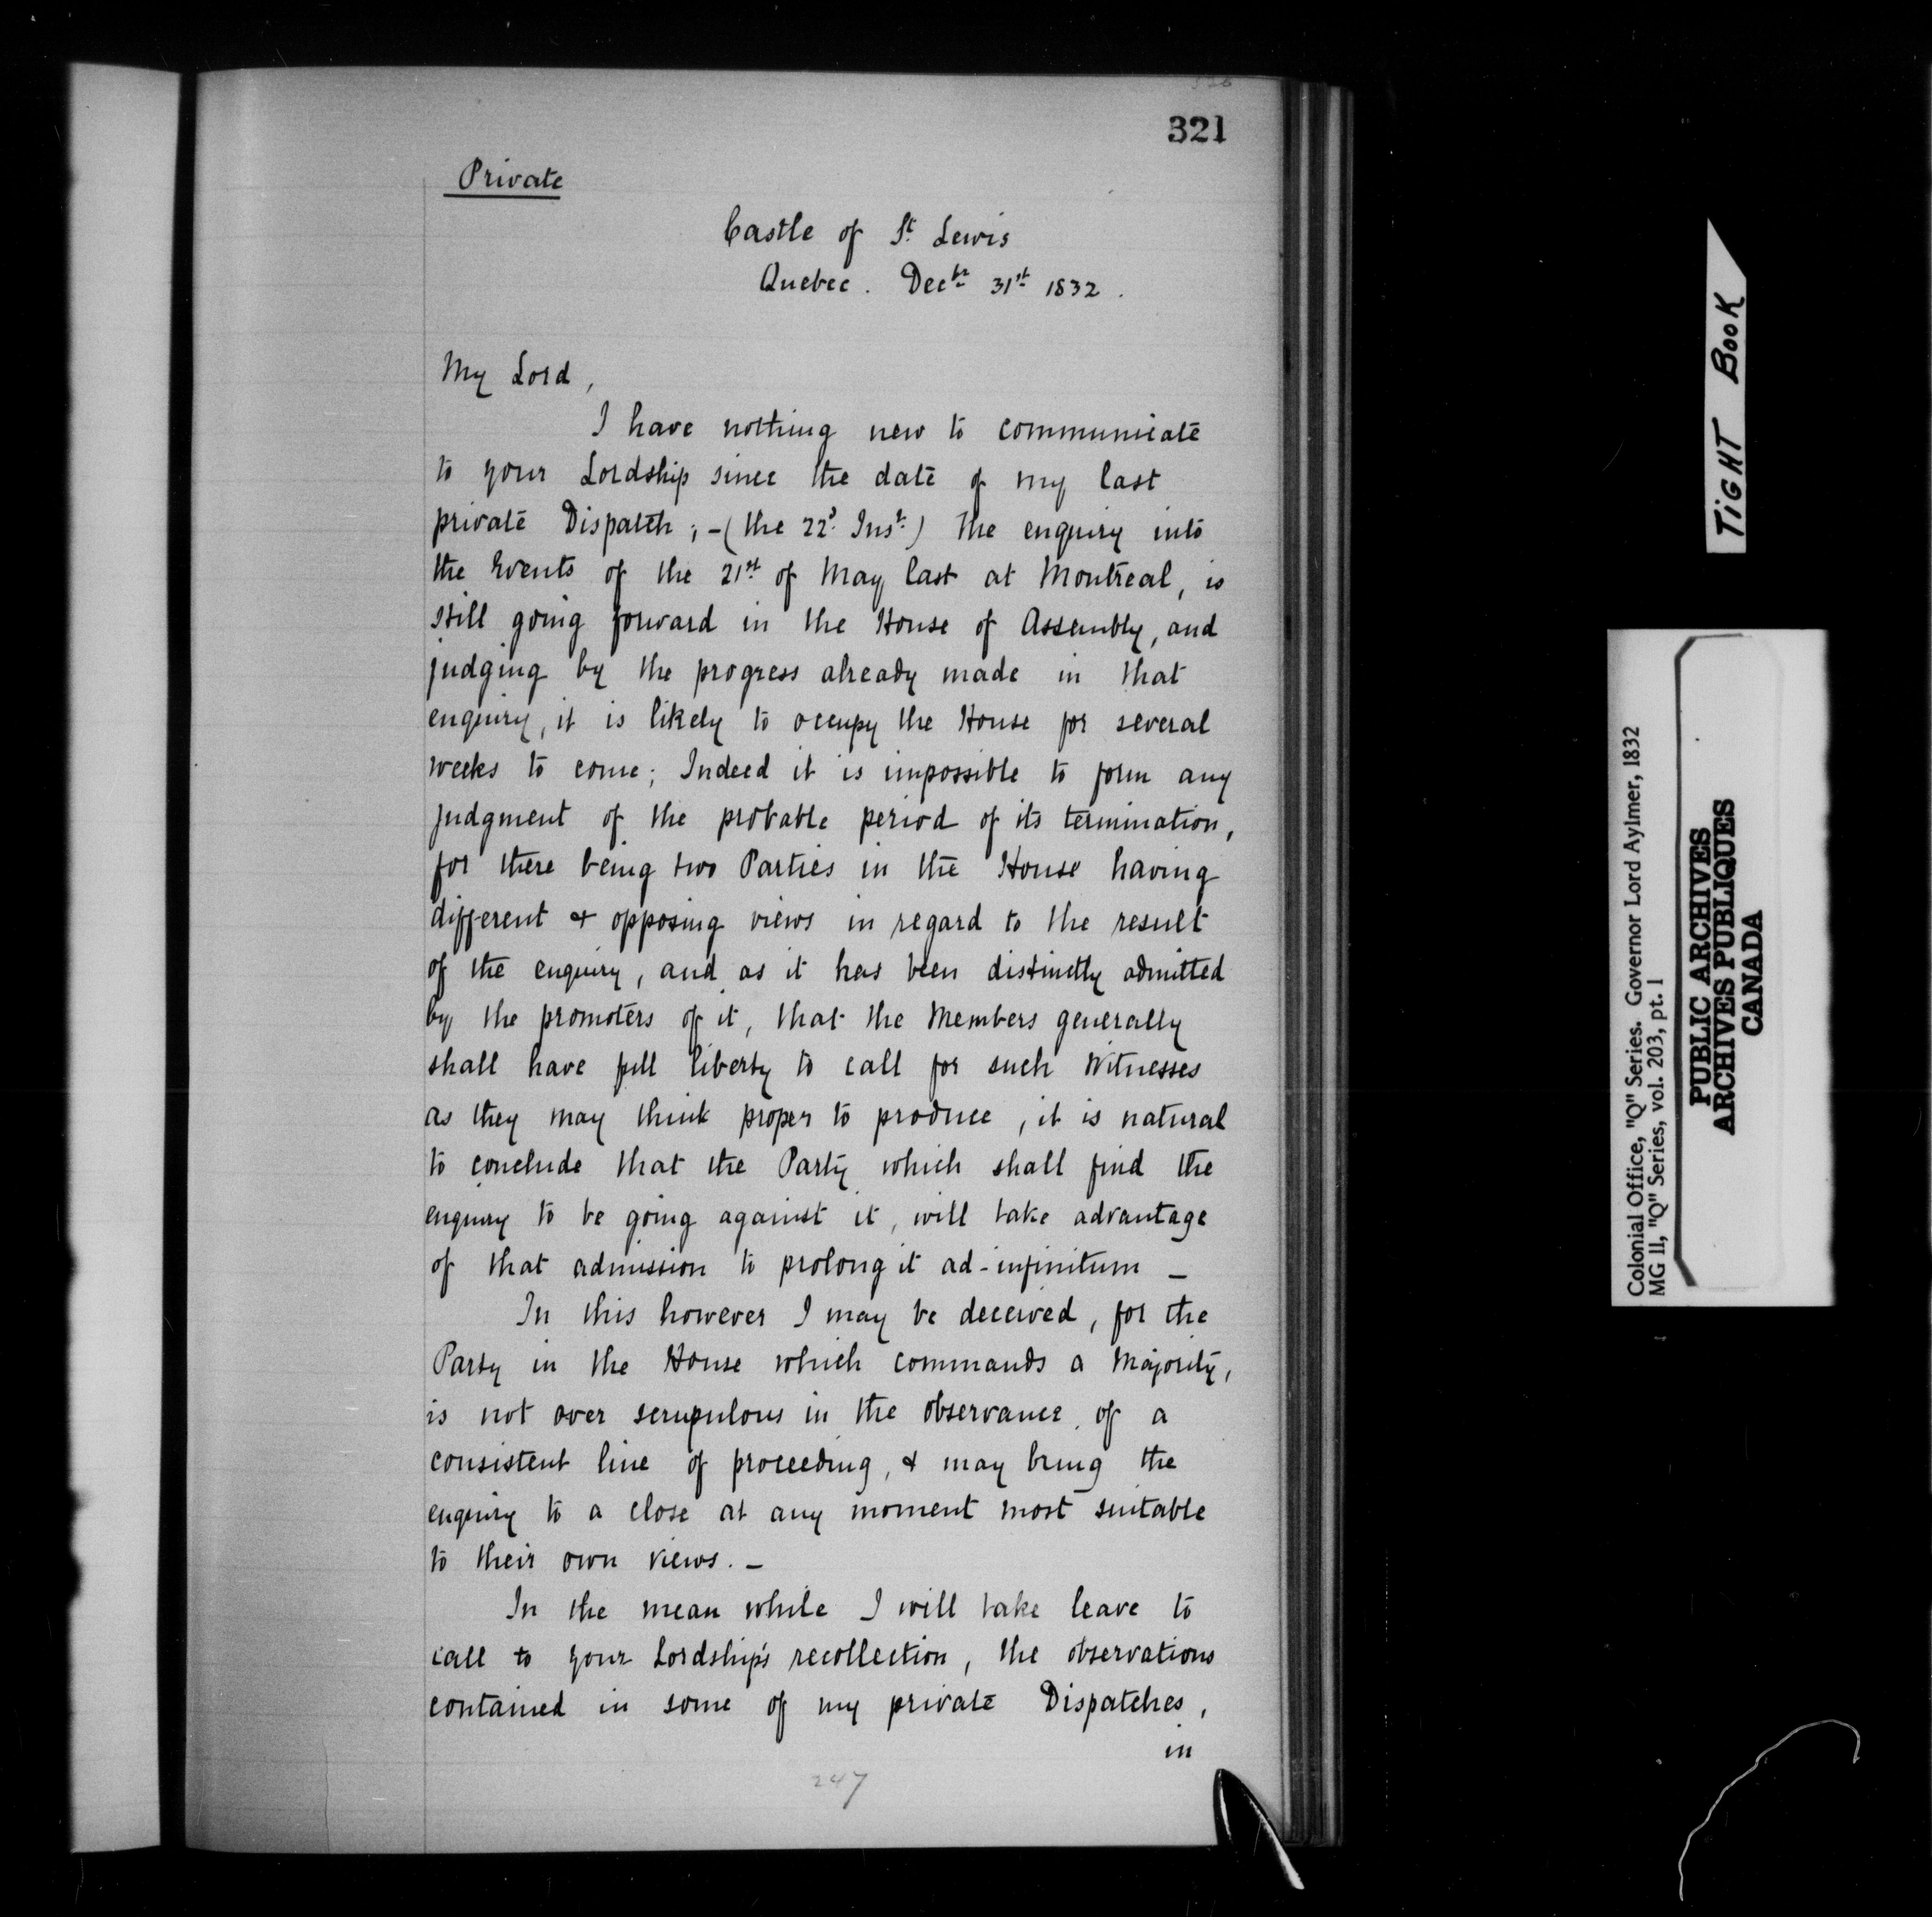 321
Private
Castle of St. Lewis
Quebec. Decbr 31st 1832.
My Lord,
I have nothing new to communicate
to your Lordship since the date of my last
private Dispatch; - (the 22d. Inst.) the enquiry into
the Events of the 21st of May last at Montreal, is
still going forward in the House of Assembly, and
judging by the progress already made in that
enquiry, it is likely to occupy the House for several
weeks to come; Indeed it is impossible to form any
judgment of the probable period of its termination,
for there being two Parties in the House having
different & opposing views in regard to the result
of the enquiry, and as it has been distinctly admitted
by the promoters of it, that the Members generally
shall have full liberty to call for such Witnesses
as they may think proper to produce, it is natural
to conclude that the Party which shall find the
enquiry to be going against it, will take advantage
of that admission to prolong it ad-infinitum —
In this however I may be deceived, for the
Party in the House which commands a Majority,
is not over scrupulous in the observance of a
consistent line of proceeding, & may bring the
enquiry to a close at any moment most suitable
to their own views. —
In the mean while I will take leave to
call to your Lordship's recollection, the observations
contained in some of my private Dispatches,
in
247
TIGHT BOOK
Colonial Office, "Q" Series. Governor Lord Aylmer, 1832
MG 11, "Q" Series, vol. 203, pt. 1
PUBLIC ARCHIVES
ARCHIVES PUBLIQUES
CANADA